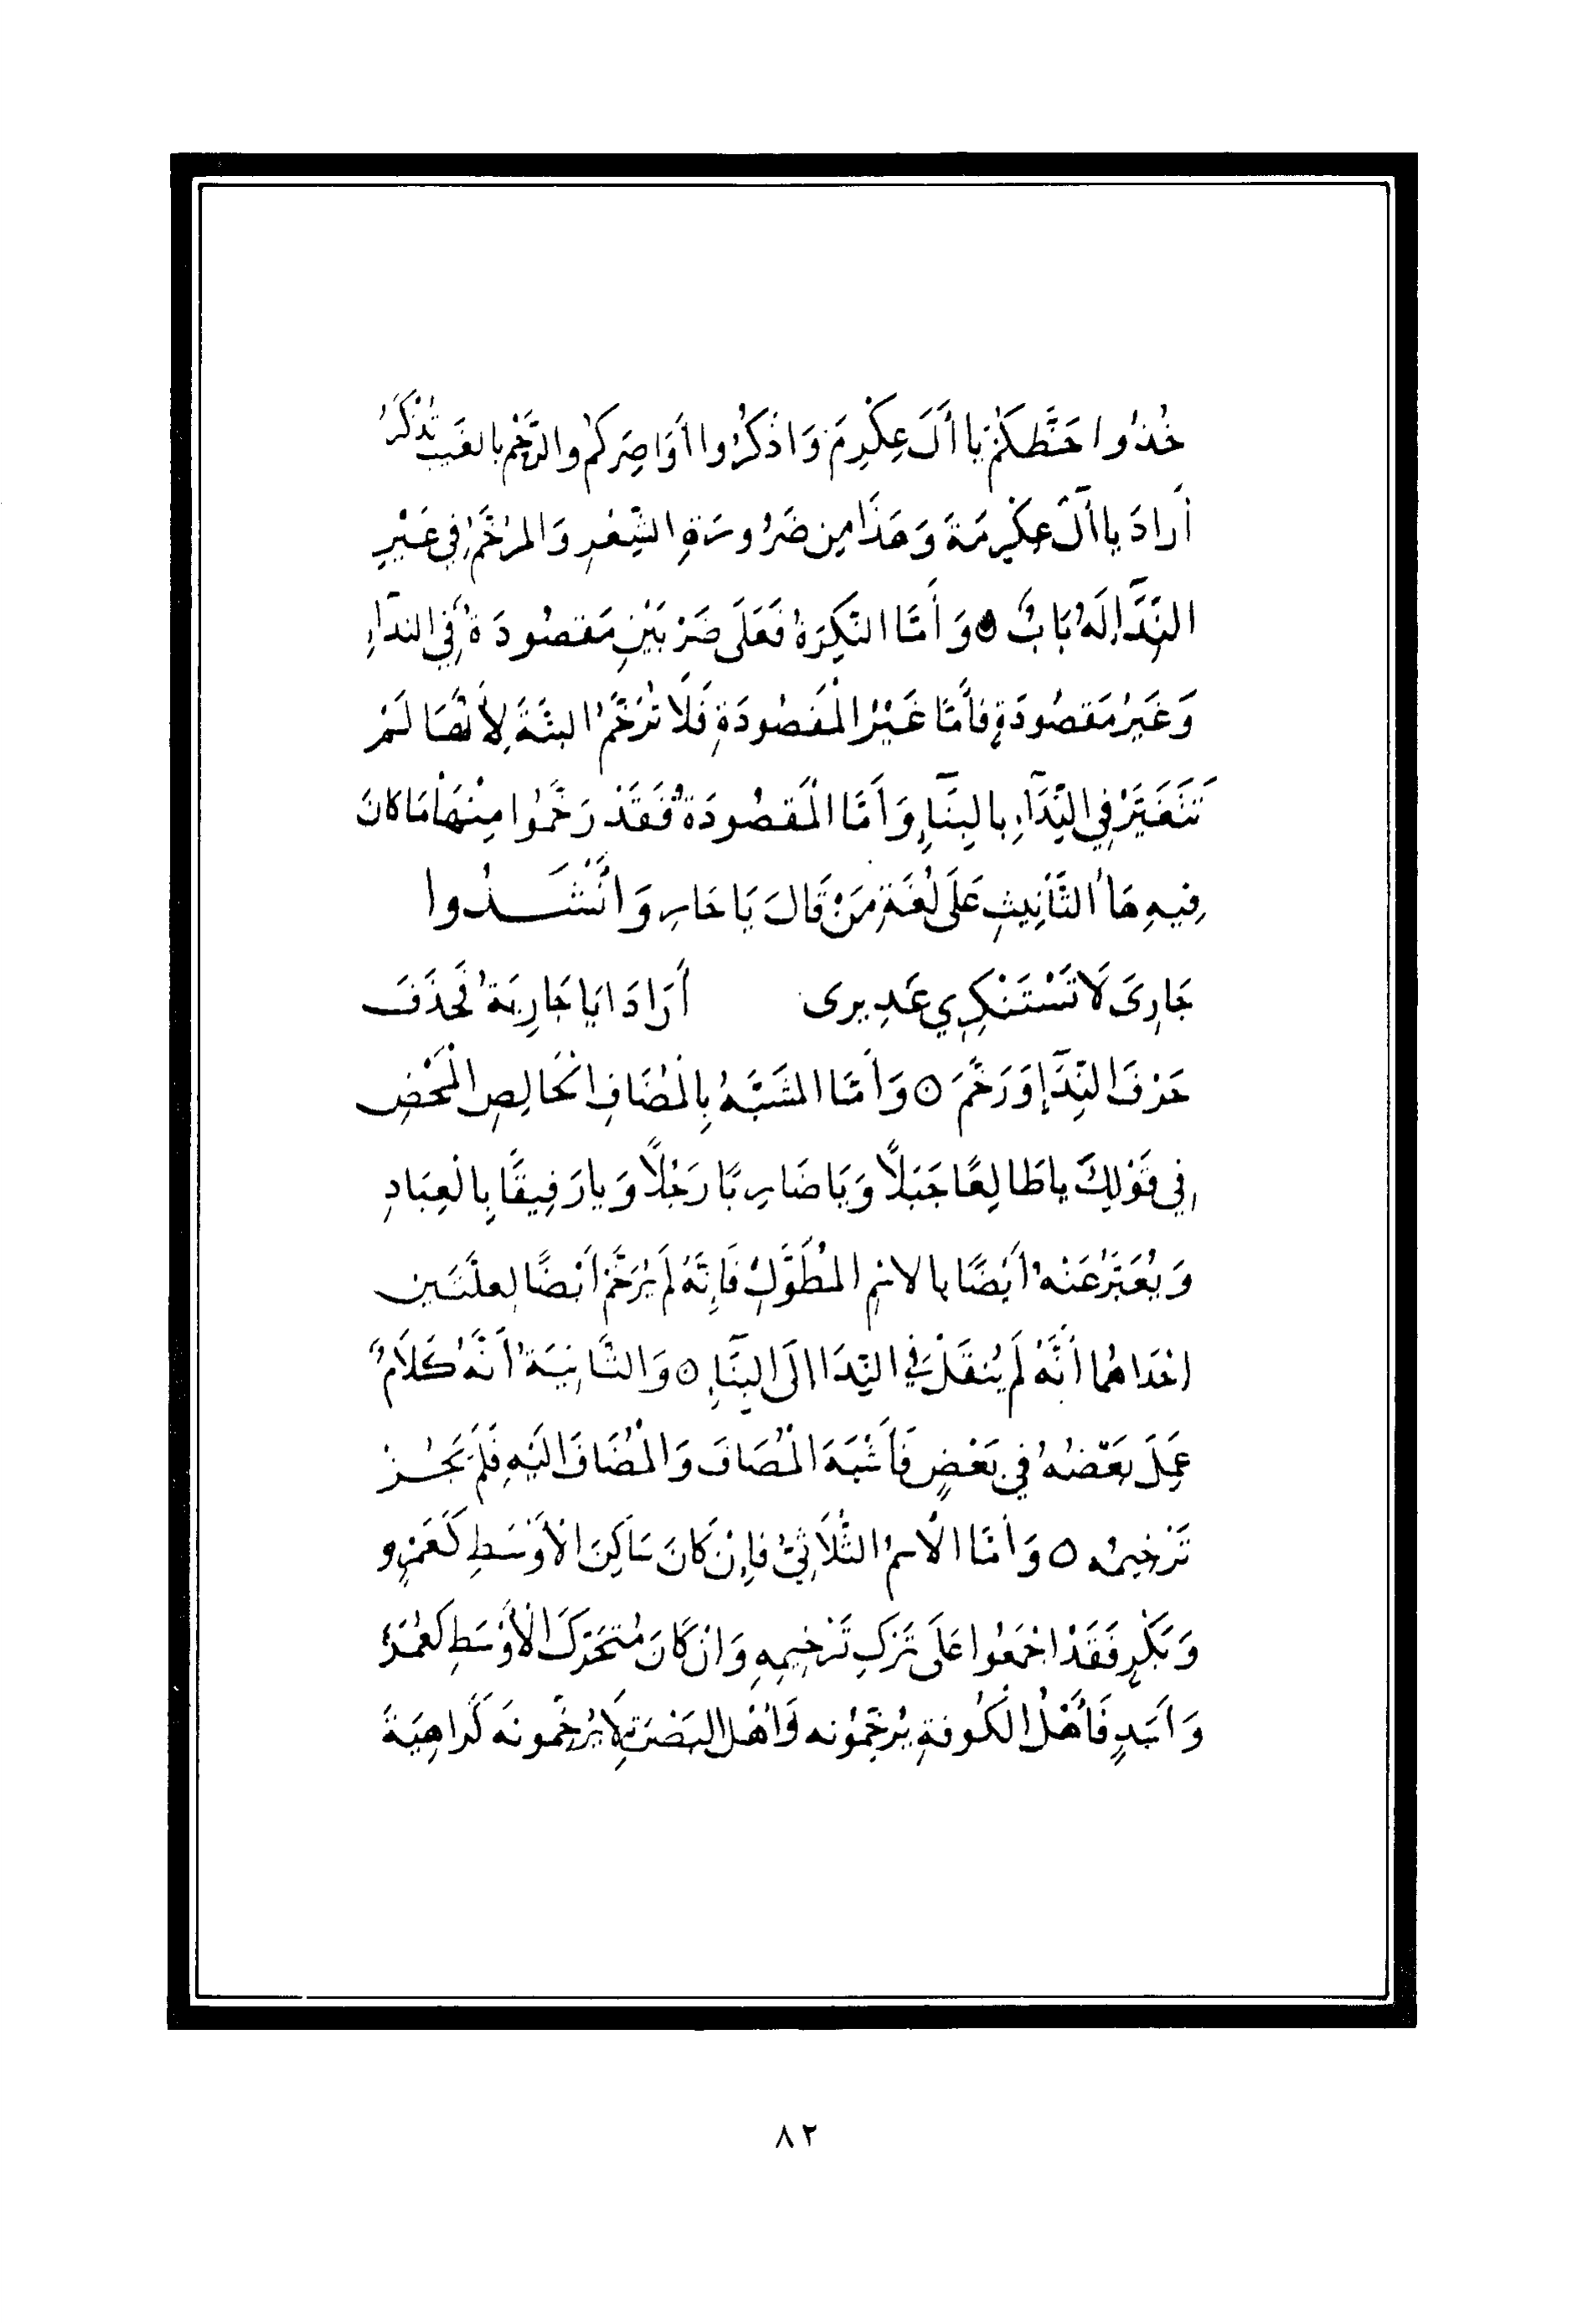 خُذُوا حَظَّكُمْ يا اۤلَ عِكْرِمَ وَاذكُرُوا اۤوَاصِرَكُم والرَّحْمُ بالغَيبِ تُذْكَرُ
أَرادَ يا اۤلَ عِكْرِمَةَ وَهَذَا مِن ضَرُورَةِ الشِّعْرِ وَالمُرَخَّمُ فِي غَيْرِ
النِّدَآءِ لَهُ بَابٌ ۞ وَأَمَّا النَّكِرَةُ فَعَلَى ضَرْبَيْنِ مَقصُودَةٌ فِي الندآءِ
وَغَيرُ مَقصُودَةٍ فأَمَّا غَيْرُ الْمَقصُودَةِ فَلَا تُرَخَّمُ البتَّةَ لِأَنَّهَا لَمْ
تَتَغَيَّرْ فِي النِّدَآءِ بالبِنَآءِ وَأَمَّا الْمَقصُودَةُ فَقَدْ رَخَّمُوا مِنْهَا مَا كانَ
فِيهِ هَاءُ التَّأنِيثِ عَلَى لُغَةِ مَنْ قَالَ يَا حَارِ وَأَنْشَدُوا
جَارِىَ لَا تَسْتَنْكِرِي عَذِيرِى أَرَادَ ايَا جَارِيَةُ فَحَذَفَ
حَرْفَ النِّدَآءِ وَرَخَّمَ ۞ وَأَمَّا المُشَبَّهُ بِالْمُضَافِ الْخَالِصِ الْمَحْضِ
فِي قَوْلِكَ يا طَالِعًا جَبَلًا وَيَا ضَارِبًا رَجُلًا وَيا رَفِيقًا بِالْعِبَادِ
وَيُعَبَّرُ عَنْهُ أَيْضًا بالاسْمِ المُطَوَّلِ فَإِنَّهُ لَمْ يُرَخَّمْ أَيْضًا لِعلَّتَيْنِ
احْدَاهُما أَنَّهُ لَمْ يُنقَلْ فِي النِّدَا الَى البِنَآءِ ۞ وَالثَّانِيَةُ أَنَّهُ كَلَامٌ
عَمِلَ بَعْضُهُ فِي بَعْضٍ فَأَشْبَهَ الْمُضَافَ وَالْمُضَافَ الَيْهِ فَلَمْ يَجُزْ
تَرْخِيمُه ۞ وَأَمَّا الاسْمُ الثُّلَاثِيُّ فإِنْ كَانَ سَاكِنَ الأَوْسَطِ كَعَمْرٍو
وَبَكْرٍ فَقَدْ اجْمَعُوا عَلَى تَرْكِ تَرْخِيمِهِ وَانْ كَانَ مُتَحَرِّكَ الْأَوْسَطِ كَعُمَرَ
وَأَسَدٍ فَأَهْلُ الْكُوفَةِ يُرَخِّمُونه وَأَهْلُ البَصْرَةِ لَا يُرَخِّمُونَه كَراهِيَةَ
٨٢